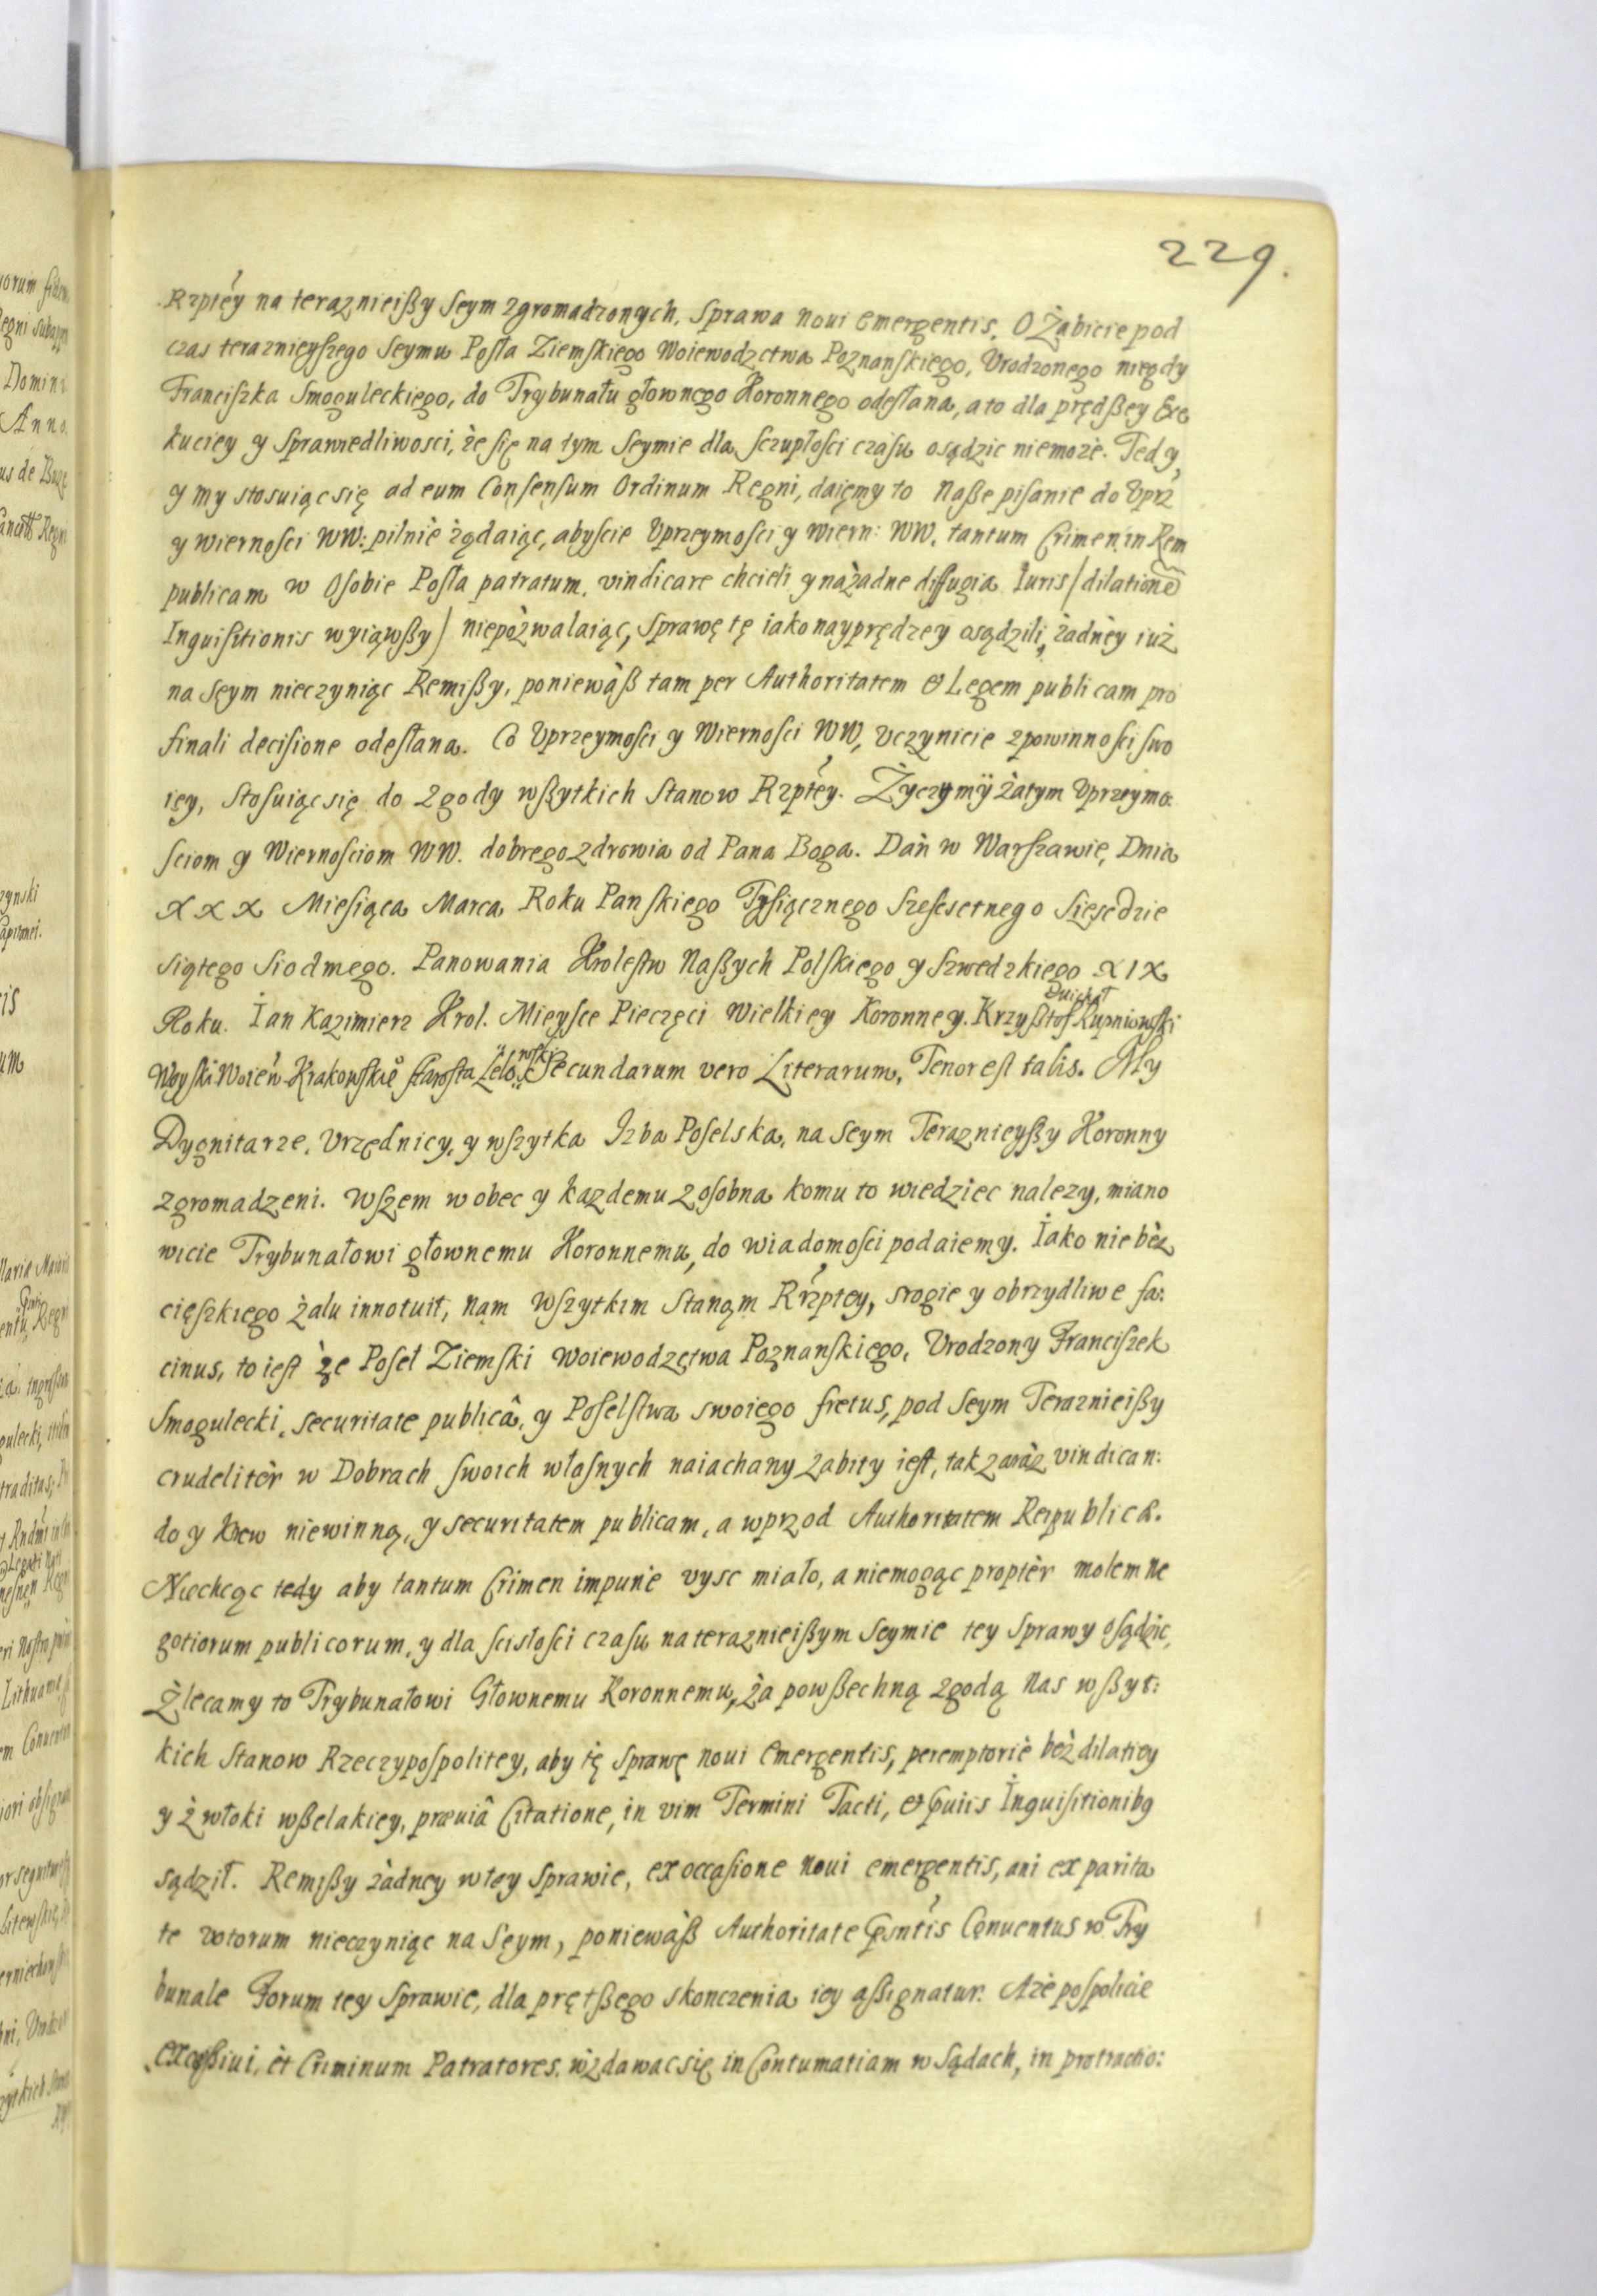 229.
Rzptéy na teraznieißy Seym zgromadzonych, Sprawa noui emergentis, O Żabicie pod
czas teraznieyszego Seymu Posła Ziemskiego Woiewodzctwa Poznanskiego, Vrodzonego niegdy
Franciszka Smoguleckiego, do Trybunału głownego Koronnego odesłana, a to dla prędßey Exe
kuciey y Sprawiedliwosci, że się na tym Seymie dla sczupłości czasu osądzic niemoże. Tedy
y my stosuiąc się ad eum Consensum Ordinum Regni, daięmy to naße pisanie do Vprz
y wiernosci WW: pilnie żądaiąc, abyscie Vprzeymosci y wiern: WW. tantum Crimen in Rem
publicam w Osobie Posła patratum, vindicare chcieli y na żadne diffugia Iuris / dilatione
Inquisitionis wyiąwßy / niepozwalaiąc, sprawę tę iako nayprędzey osądzili, żadney iuż
na Seym nieczyniąc Remißy, poniewaß tam per Authoritatem et Legem publicam pro
finali decisione odesłana. Co Vprzeymości y Wiernosci WW, vczynicie z powinnosci swo
iey, stosuiąc się do zgody wßytkich Stanow Rzptéy. Życzymÿ zatym Vprzeymo:
sciom y Wiernosciom WW. dobrego zdrowia od Pana Boga. Dan w Warszawie, Dnia
XXX Miesiąca Marca Roku Panskiego Tysiącznego Szescsetnego Sięscdzie
siątego Siodmego. Panowania Krolestw Naßych Polskiego y Szwedzkiego XIX
Roku. Ian Kazimierz Krol. Mieysce Pieczęci Wielkiey Koronney. Krzyßtof Rupniowski
Woyski Woiew Krakowskie Starosta Secundarum vero Literarum, Tenor est talis. My
Dygnitarze, Vrzędnicy, y wszytka Izba Poselska, na Seym Teraznieyßy Koronny
zgromadzeni. Wszem wobec y kazdemu z osobna komu to wiedziec nalezy, miano
wicie Trybunałowi głownemu Koronnemu, do wiadomości podaiemy. Iako nie bez
cięszkiego żalu innotuit, nam wszytkim Stanom Rzptey, srogie y obrzydliwe fa:
cinus, to iest że Poseł Ziemski Woiewodzctwa Poznanskiego, Vrodzony Franciszek
Smogulecki, securitate publicâ, y Poselstwa swoiego fretus, pod Seym Teraznieißy
crudeliter w Dobrach swoich własnych naiachany zabity iest, tak zaraz vindican:
do y krew niewinną, y securitatem publicam, a wprzod Authoritatem Reipublicæ.
Niechcąc tedy aby tantum Crimen impune vysc miało, a niemogąc propter molem ne
gotiorum publicorum, y dla scisłości czasu na teraznieißym Seymie tey Sprawy osądzic,
Zlecamy to Trybunałowi Głownemu Koronnemu, za powßechną zgodą nas wßyt:
kich Stanow Rzeczypospolitey, aby tę sprawę noui emergentis, peremptorie bez dilatiey
y zwłoki wßelakiey, præuiâ Citatione, in vim Termini Tacti, et Inquisitionibg
sądził. Remißy żadney w tey Sprawie, ex occasione noui emergentis, ani ex parita
te votorum nieczyniąc na Seym, poniewaß Authoritate Conuentus w Try
bunale Forum tey Sprawie, dla prętßego skonczenia iey aßignatur. Aże pospolicie
et Criminum Patratores, wzdawac się in Contumatiam w Sądach, in protractio: